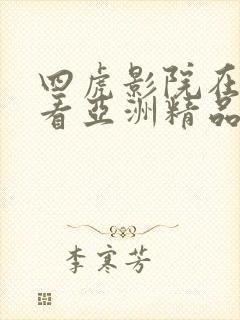 四虎影院在
看亚洲精品
李寒芳